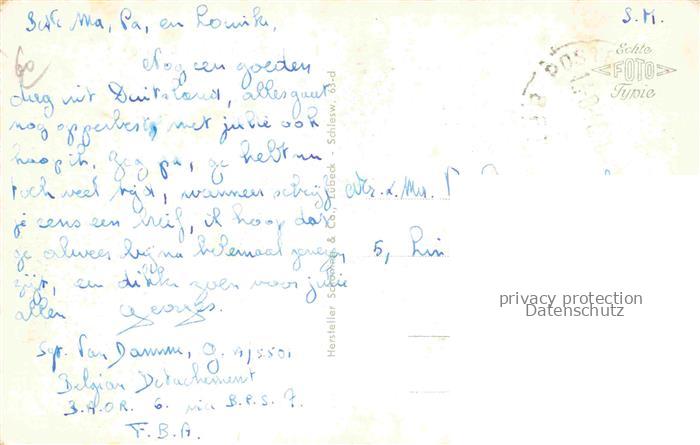 Beste Ma, Pa, en Louiske,
Nog een goeden
dag uit Duitsland, alles gaat
nog opperbest, met julie ook
hoop ik, zeg pa, ge hebt nu
toch veel tijd, wanneer schrijf
je eens een brief, ik hoop dat
ge alweer bijna helemaal genezen
zijt, en dikke zoen voor julie
allen Georges.
Sgt. Van Damme, G.
Belgian Detachement
B.A.O.R. 6. via B.P.S. 7.
F.B.A.
60
S.M.
Echte
FOTO
Typie
POST
Hersteller Schöning & Co., Lübeck - Schlesw. 63-d
Mr. & Mrs.
5, Lin
privacy protection
Datenschutz